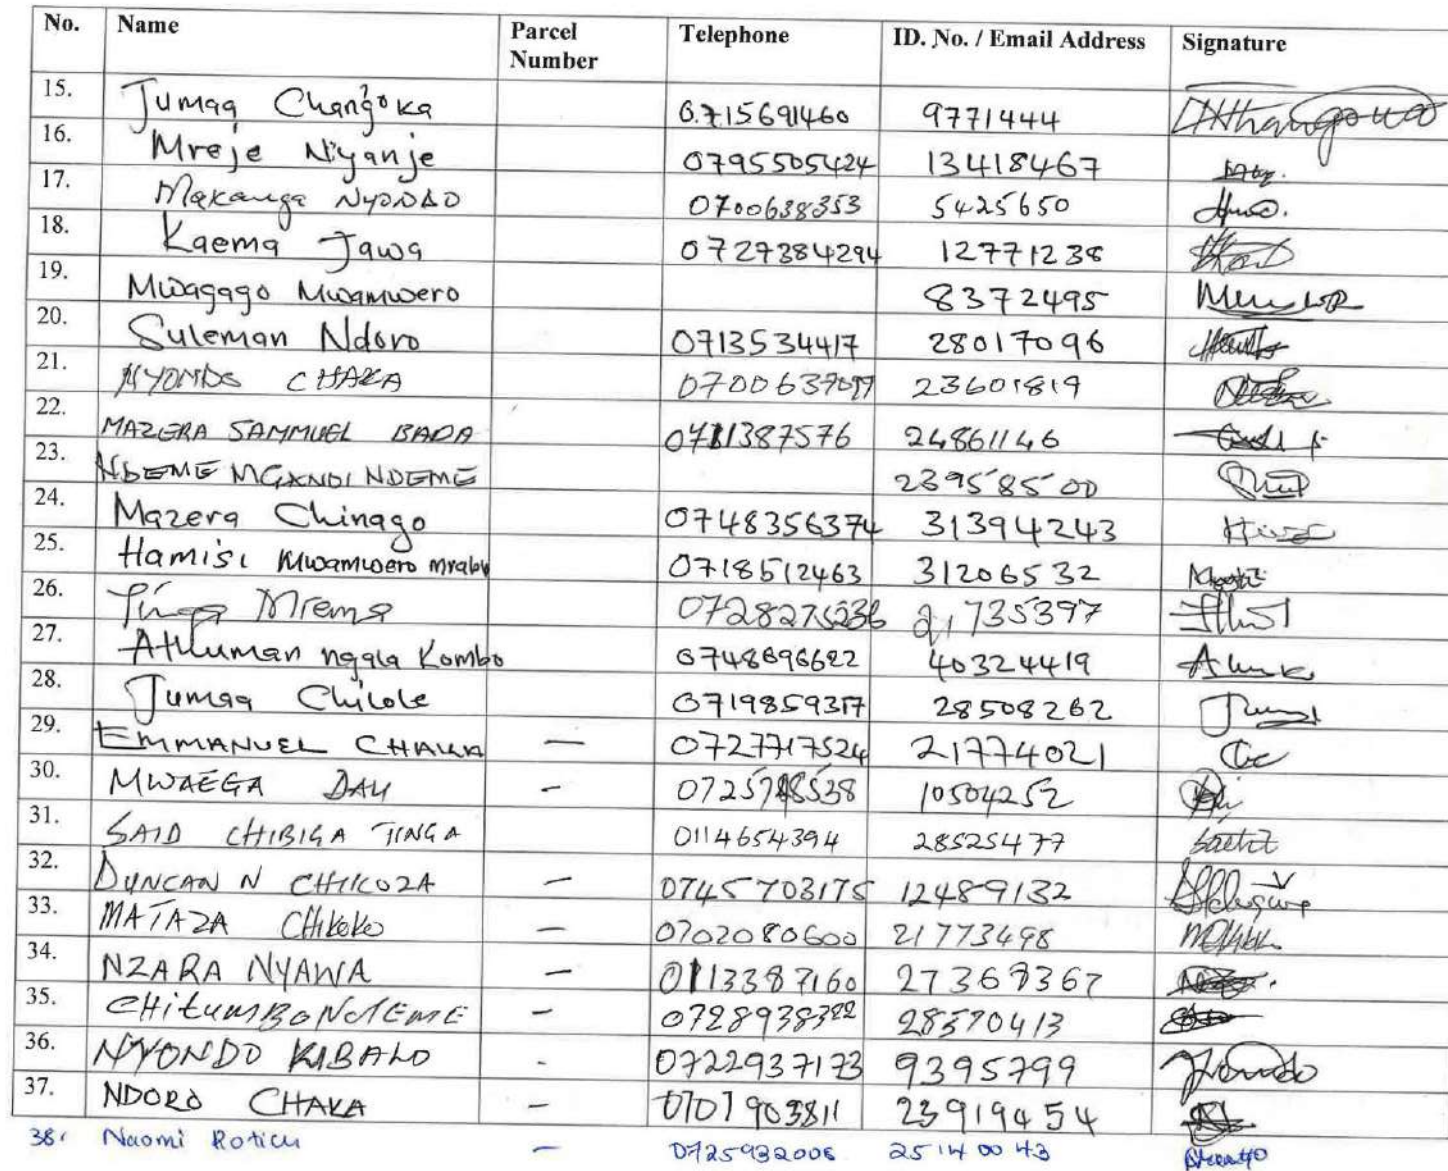 No. Name Parcel Number Telephone ID. No. / Email Address Signature
15. Jumaa Chang'oka 0715691460 9771444
16. Mreje Niyanje 0795505424 13418467
17. Makanga NYONDO 0700638353 5425650
18. Kaema Jawa 0727384294 12771238
19. Mwagago Mwamwero 8372495
20. Suleman Ndoro 0713534417 28017096
21. NYONDO CHAKA 23601819
22. MAZERA SAMMUEL BADA 0711387576 24861146
23. NDEME MGANDI NDEME 23958500
24. Mazera Chinago 0748356374 31394243
25. Hamisi Mwamwero mrabu 0718512463 31206532
26. Tinga Mrema 0728275236 21735397
27. Athuman ngala Kombo 0748696622 40324419
28. Jumaa Chilole 0719859317 28508262
29. EMMANUEL CHAKA — 0727717524 21774021
30. MWAEGA DAU - 10504252
31. SAID CHIBIGA TINGA 0114654394 28525477
32. DUNCAN N CHIKOZA — 0745703175 12489132
33. MATAZA CHIKOKO — 0702080600 21773498
34. NZARA NYAWA — 0113387160 27368367
35. CHITUMBO NDEME — 28570413
36. NYONDO KIBALO - 0722937173 9395799
37. NDORO CHAKA — 0707903811 23919454
38. Naomi Rotich — 0725932006 25140043